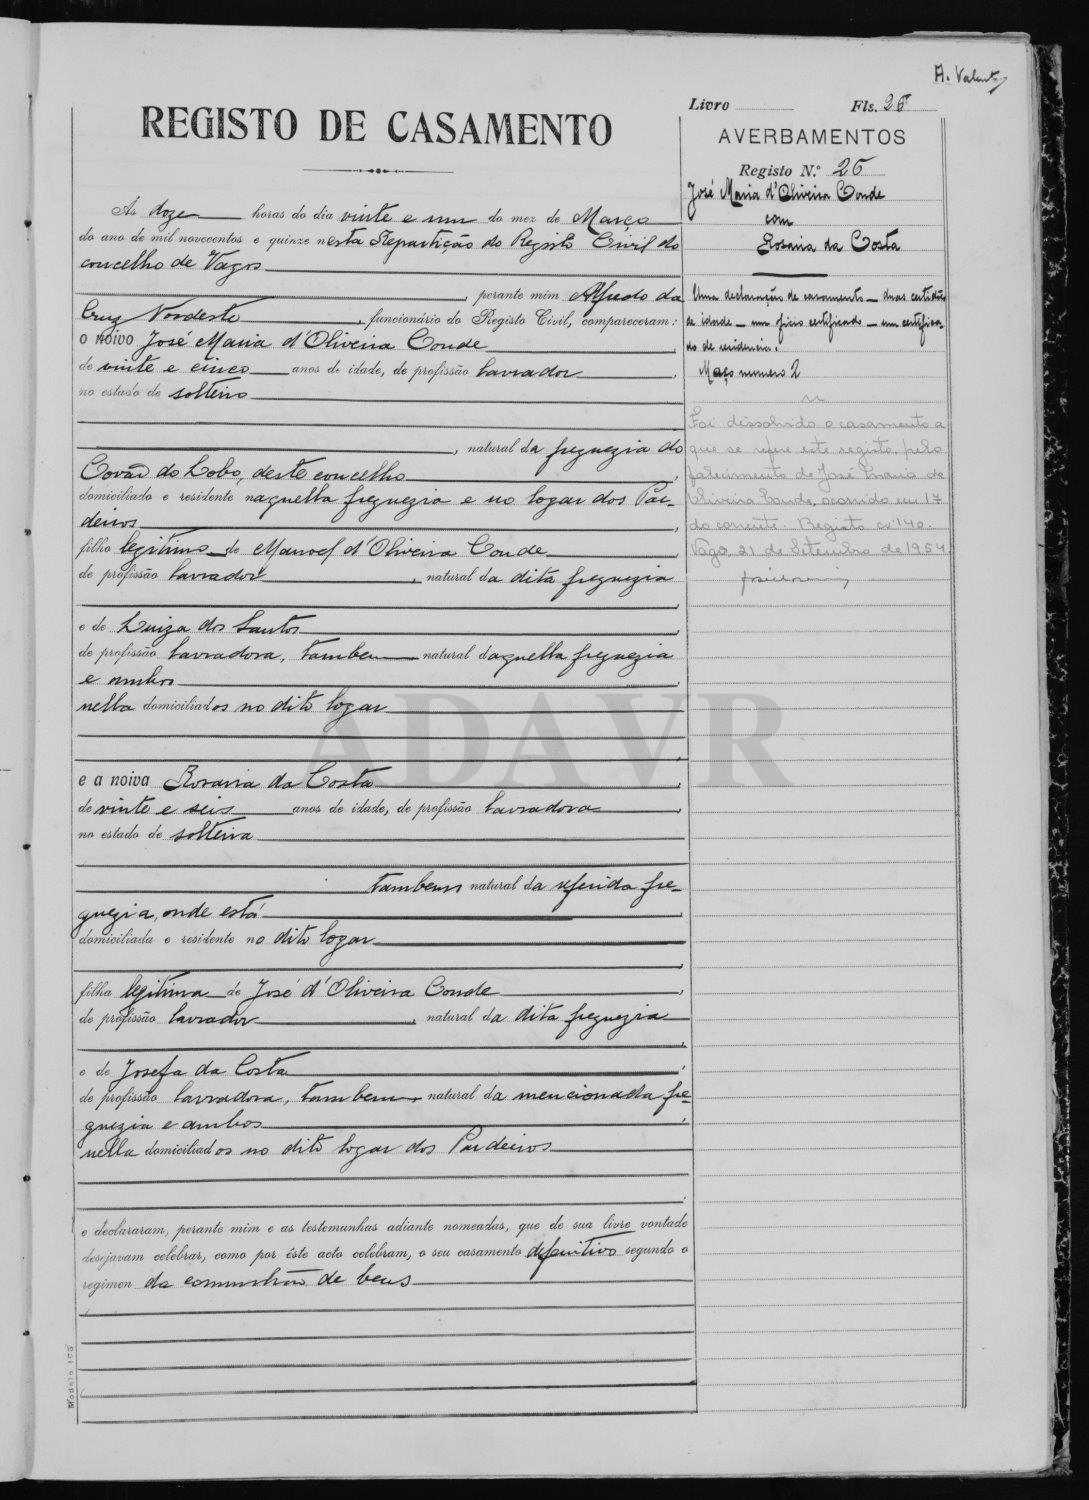 A. Valente
Livro Fls. 25
REGISTO DE CASAMENTO
AVERBAMENTOS
Registo N.º 25
José Maria d'Oliveira Conde
com
Rosaria da Costa
Uma declaração de casamento — duas certidões
de idade — um certificado — um certifica-
do de residencia.
Maço numero 2
Foi dissolvido o casamento a
que se refere este registo, pelo
falecimento de José Maria de
Oliveira Conde, ocorrido em 17
do corrente. Registo nº 140.
Vagos, 21 de Setembro de 1954
As doze horas do dia vinte e um do mez de Março
do ano de mil novecentos e quinze nesta Repartição do Registo Civil do
concelho de Vagos
, perante mim Alfredo da
Cruz Nordeste, funcionário do Registo Civil, compareceram:
o noivo José Maria d'Oliveira Conde
de vinte e cinco anos de idade, de profissão lavrador,
no estado de solteiro
, natural da freguezia do
Covão do Lobo, deste concelho,
domiciliado e residente naquella freguezia e no logar dos Par-
deiros,
filho legitimo de Manoel d'Oliveira Conde,
de profissão lavrador, natural da dita freguezia
e de Luiza dos Santos,
de profissão lavradora, tambem natural daquella freguezia
e ambos
nella domiciliados no dito logar
ADAVR
e a noiva Rosaria da Costa,
de vinte e seis anos de idade, de profissão lavradora,
no estado de solteira
tambem natural da referida fre-
guezia, onde está
domiciliada e residente no dito logar
filha legitima de José d'Oliveira Conde,
de profissão lavrador, natural da dita freguezia
e de Josefa da Costa,
de profissão lavradora, tambem, natural da mencionada fre-
guezia e ambos
nella domiciliados no dito logar dos Pardeiros
e declararam, perante mim e as testemunhas adiante nomeadas, que de sua livre vontade
desejavam celebrar, como por êste acto celebram, o seu casamento definitivo segundo o
regimen da comunhão de bens
Modelo 105